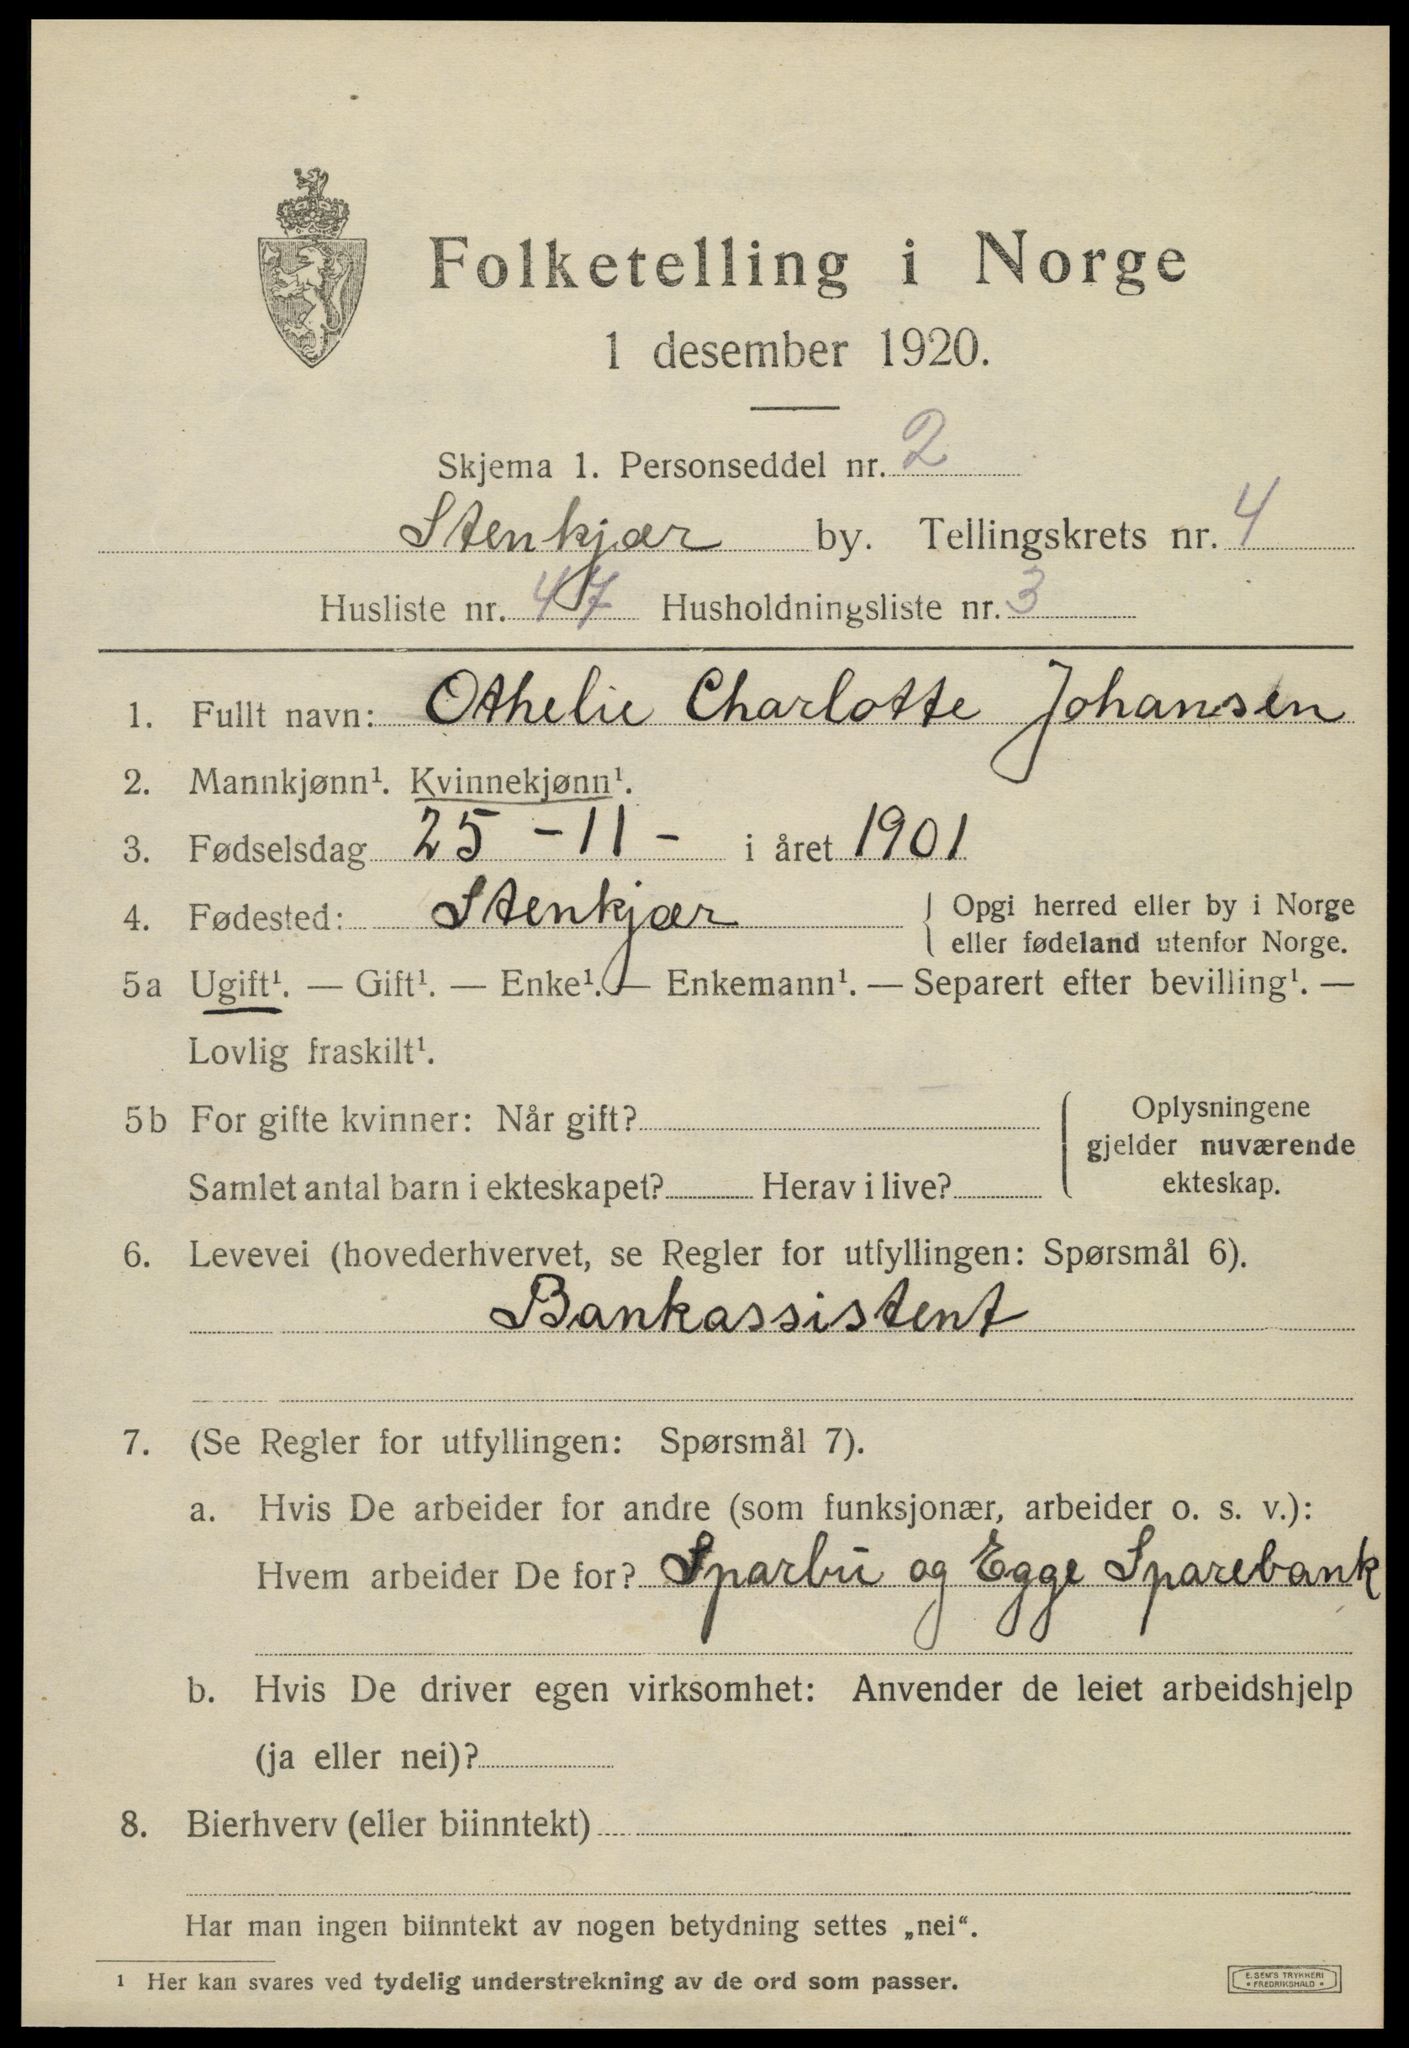 Folketelling i Norge
1 desember 1920.
Skjema 1. Personseddel nr. 2
Stenkjær by. Tellingskrets nr. 4
Husliste nr. 47 Husholdningsliste nr. 3
1. Fullt navn: Othelie Charlotte Johansen
2. Mannkjønn¹. Kvinnekjønn¹.
3. Fødselsdag 25 - 11 - i året 1901
4. Fødested: Stenkjær { Opgi herred eller by i Norge
eller fødeland utenfor Norge.
5a Ugift¹. — Gift¹. — Enke¹. — Enkemann¹. — Separert efter bevilling¹. —
Lovlig fraskilt¹.
5b For gifte kvinner: Når gift?
Samlet antal barn i ekteskapet? Herav i live?
Oplysningene
gjelder nuværende
ekteskap.
6. Levevei (hovederhvervet, se Regler for utfyllingen: Spørsmål 6).
Bankassistent
7. (Se Regler for utfyllingen: Spørsmål 7).
a. Hvis De arbeider for andre (som funksjonær, arbeider o. s. v.):
Hvem arbeider De for? Sparbu og Egge Sparebank
b. Hvis De driver egen virksomhet: Anvender de leiet arbeidshjelp
(ja eller nei)?
8. Bierhverv (eller biinntekt)
Har man ingen biinntekt av nogen betydning settes „nei“.
¹ Her kan svares ved tydelig understrekning av de ord som passer.
E. SEM'S TRYKKERI
• FREDRIKSHALD •